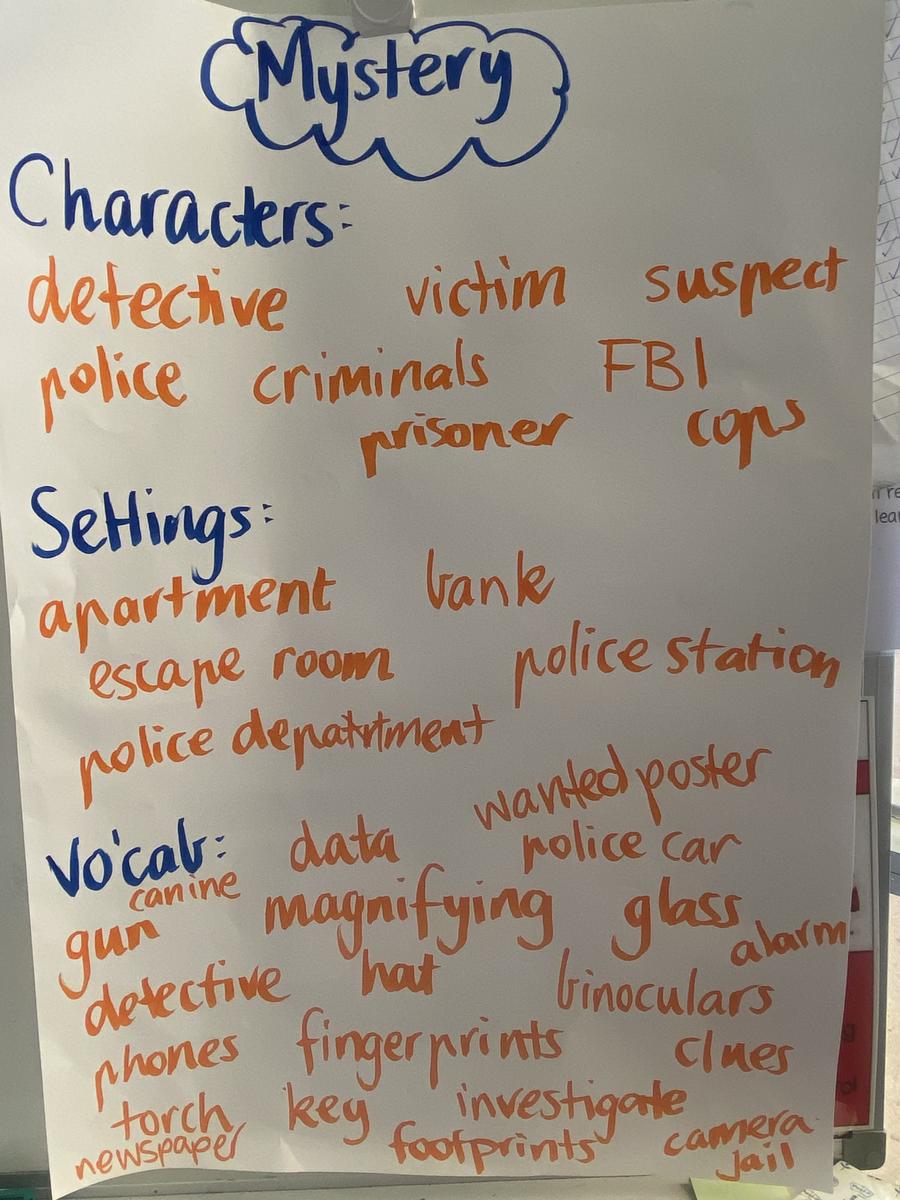 Mystery
Characters:
detective victim suspect
police criminals FBI
prisoner cops
Settings:
apartment bank
escape room police station
police depatrtment
wanted poster
Vocab: data police car
canine
gun magnifying glass
alarm
detective hat binoculars
phones fingerprints clues
torch key investigate
newspaper footprints camera
jail